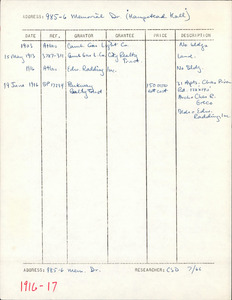 ADDRESS: 985-6 Memorial Dr. (Hampstead Hall)
DATE REF. GRANTOR GRANTEE PRICE DESCRIPTION
1903 Atlas Camb. Gas Light Co. No bldgs
15 May 1913 3787-317 Camb Gas L Co City Realty Trust Land
1916 Atlas Edw. Redding Inc. No Bldg
19 June 1916 BP Parkway Realty Trust 150,000 21 Apts.
Arch: Chas R. Greco
Bldr: Edw. Redding Inc.
ADDRESS: 985-6 Mem. Dr. RESEARCHER: CSD 7/66
1916-17